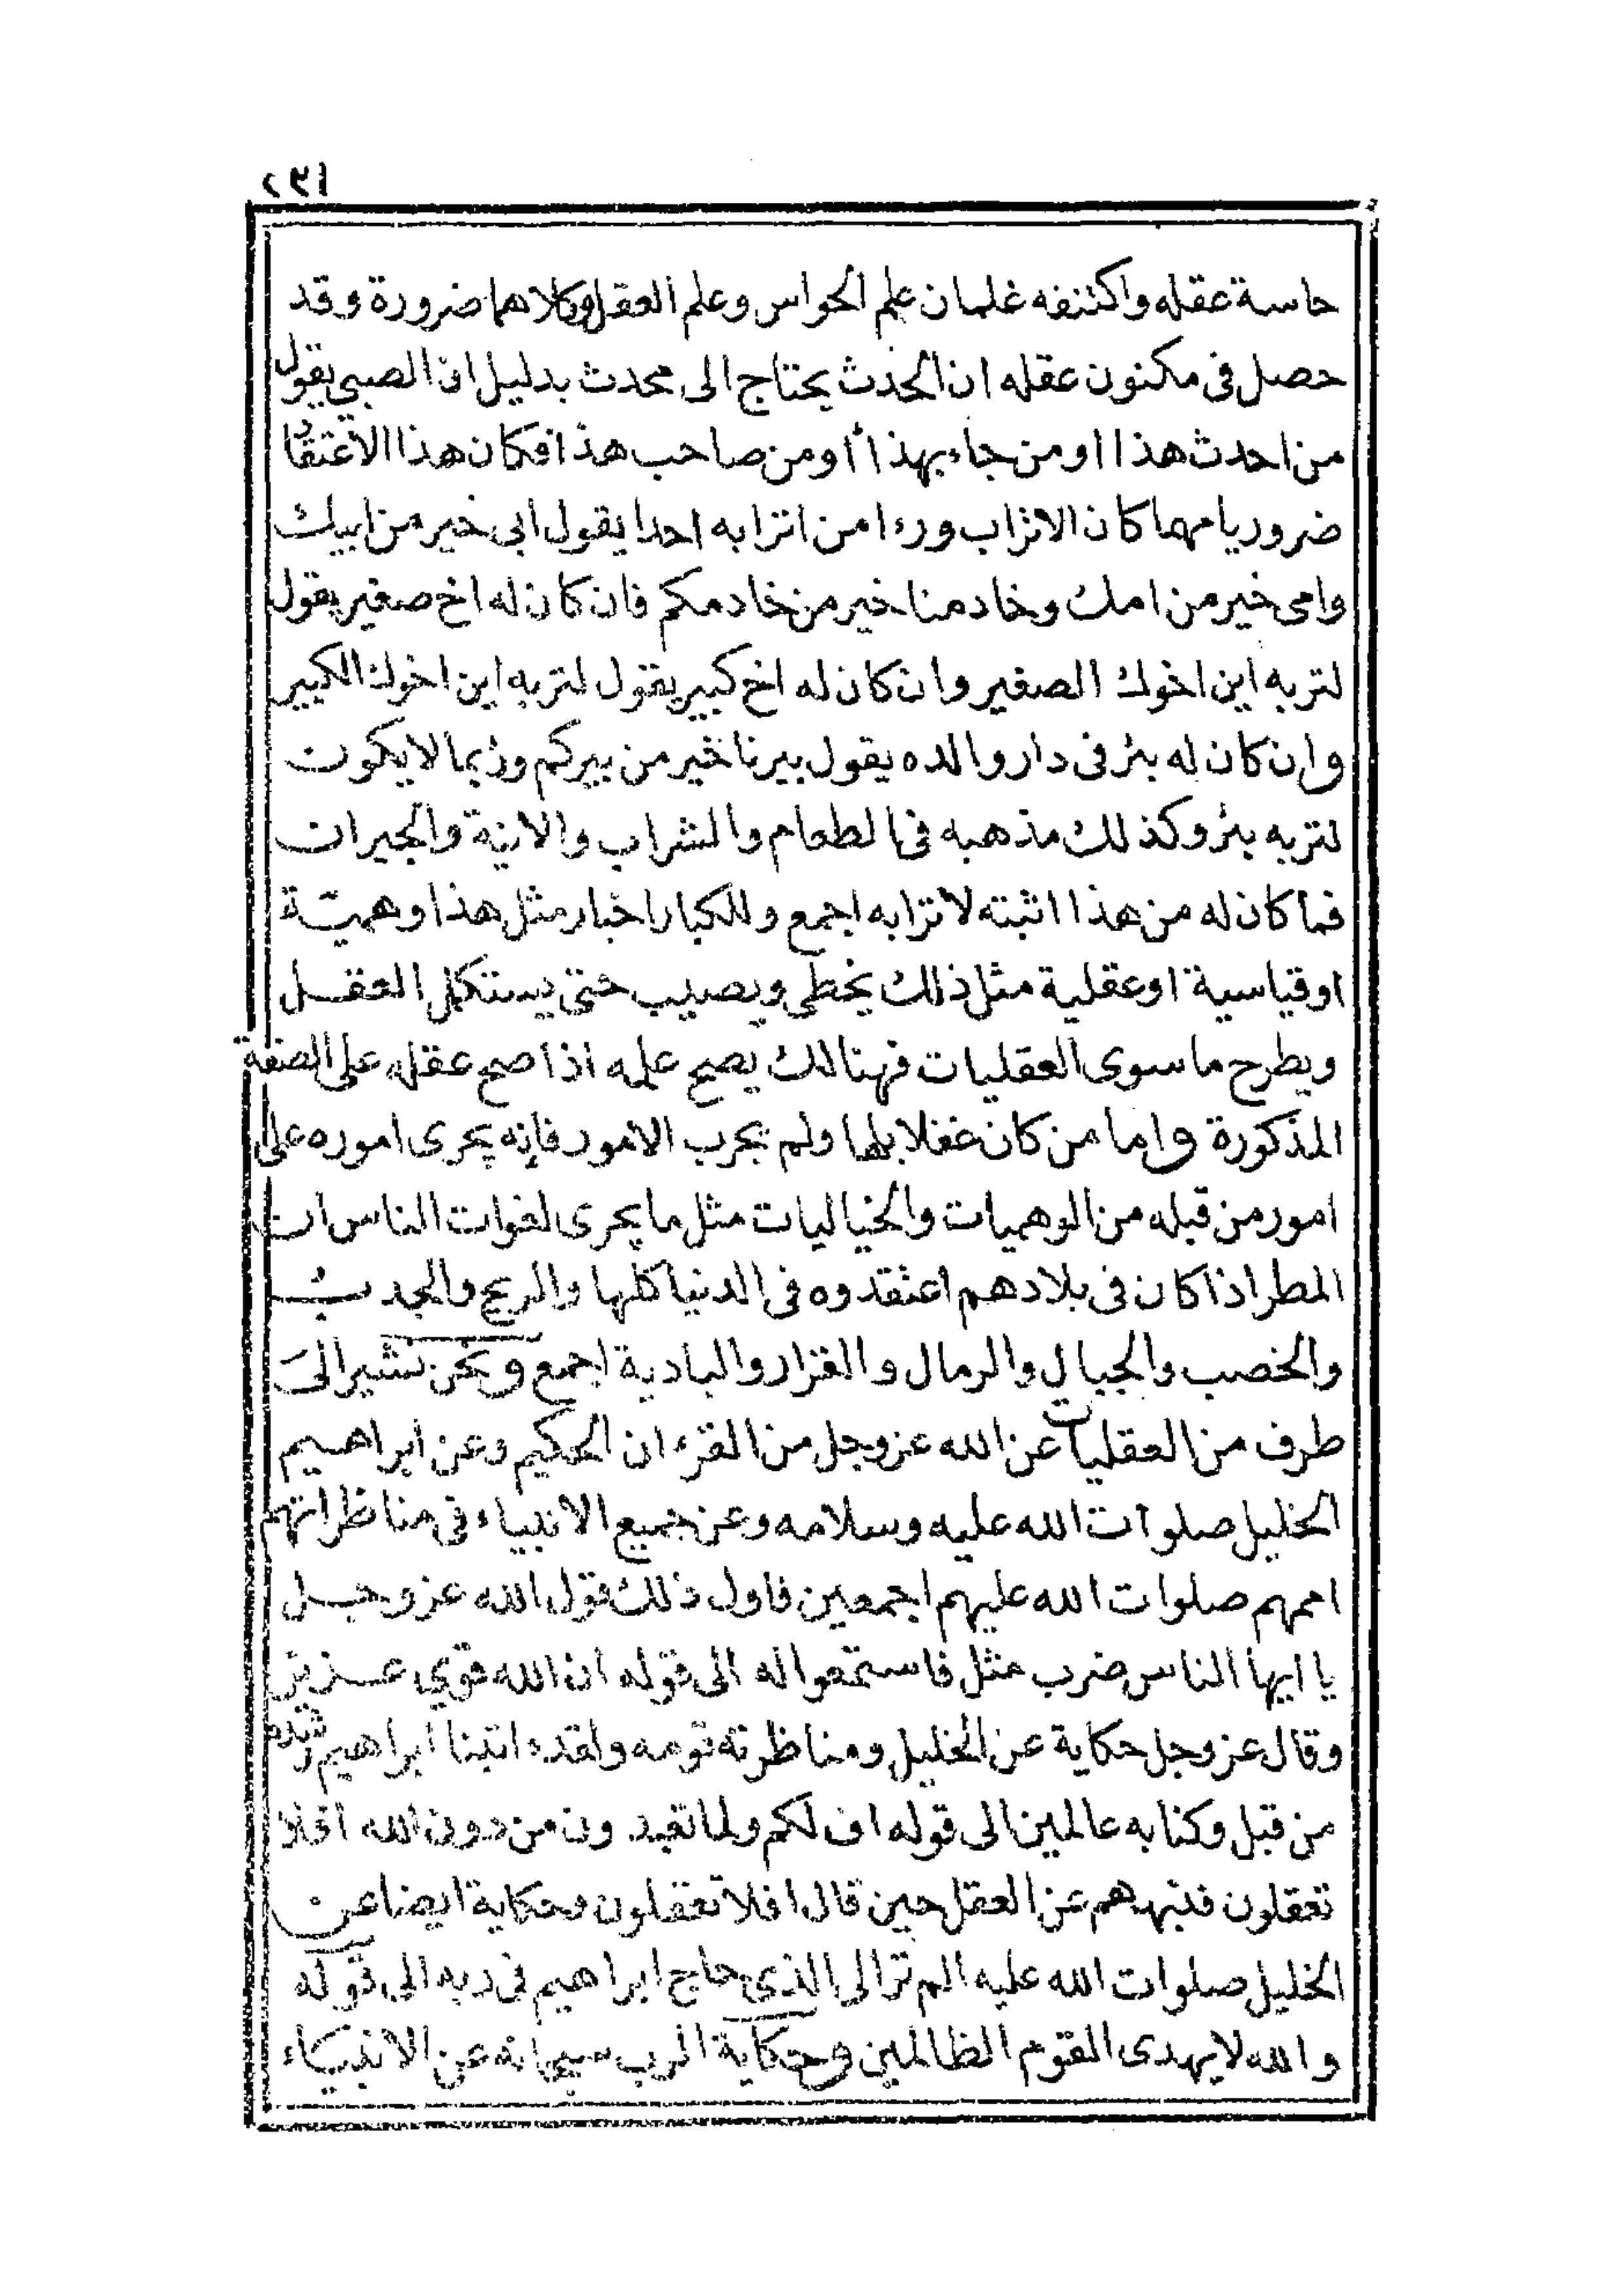 ١٣٢
حاسة عقله واكتنفه علمان علم الحواس وعلم العقل وكلاهما ضرورة وقد
حصل فى مكنون عقله ان الحدث يحتاج الى محدث بدليل ان الصبي يقول
من احدث هذا او من جاء بهذا او من صاحب هذا فكان هذا الاعتقاد
ضروريا مهما كان الاتراب ورءا من اترابه احدا يقول ابى خير من ابيك
وامى خير من امك وخادمنا خير من خادمكم فان كان له اخ صغير يقول
لتربه اين اخوك الصغير وان كان له اخ كبير يقول لتربه اين اخوك الكبير
وان كان له بئر فى دار والده يقول بيرنا خير من بيركم وربما لا يكون
لتربه بئر وكذلك مذهبه فى الطعام والشراب والانية والجيران
فما كان له من هذا اثبته لاترابه اجمع وللكبار اخبار مثل هذا وهمية
او قياسية او عقلية مثل ذلك يخطى ويصيب حتى يستكمل العقل
ويطرح ما سوى العقليات فهنالك يصح علمه اذا صح عقله على الصفة
المذكورة واما من كان غفلا بلها ولم يجرب الامور فانه يجرى اموره على
امور من قبله من الوهميات والخياليات مثل ما يجرى لغوات الناس ان
المطر اذا كان فى بلادهم اعتقدوه فى الدنيا كلها والريح والجدب
والخصب والجبال والرمال والقزار والبادية اجمع ونحن نشير الى
طرف من العقليات عن الله عز وجل من القرءان الحكيم وعن ابراهيم
الخليل صلوات الله عليه وسلامه وعن جميع الانبياء فى مناظراتهم
اممهم صلوات الله عليهم اجمعين فاول ذلك قول الله عز وجل
يا ايها الناس ضرب مثل فاستمعوا له الى قوله ان الله قوي عزيز
وقال عز وجل حكاية عن الخليل ومناظرته قومه ولقد ءاتينا ابراهيم رشده
من قبل وكنا به عالمين الى قوله اف لكم ولما تعبدون من دون الله افلا
تعقلون فنبههم عن العقل حين قال افلا تعقلون وحكاية ايضا عن
الخليل صلوات الله عليه الم تر الى الذى حاج ابراهيم فى ربه الى قوله
والله لا يهدى القوم الظالمين وحكاية الرب سبحانه عن الانبياء